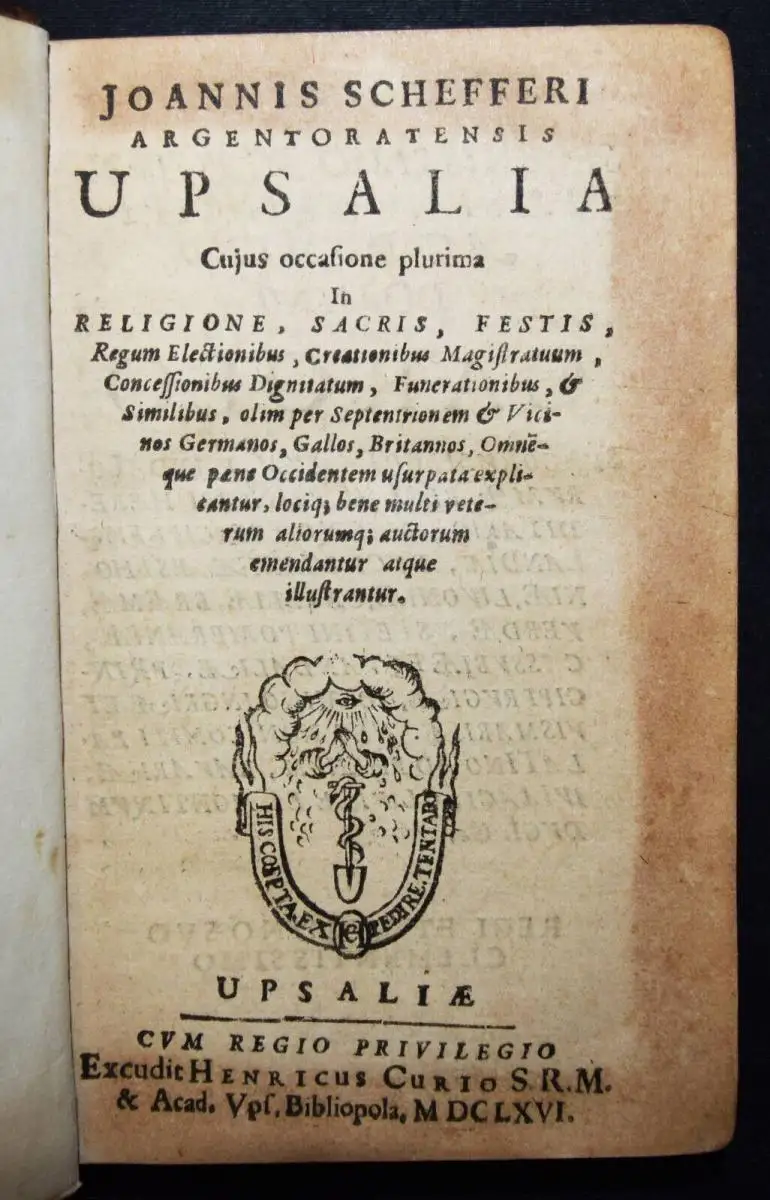 JOANNIS SCHEFFERI
ARGENTORATENSIS
UPSALIA
Cujus occasione plurima
In
RELIGIONE, SACRIS, FESTIS,
Regum Electionibus, Creationibus Magistratuum,
Concessionibus Dignitatum, Funerationibus, &
Similibus, olim per Septentrionem & Vici-
nos Germanos, Gallos, Britannos, Omnē-
que pene Occidentem usurpata expli-
cantur, lociq; bene multi vete-
rum aliorumq; auctorum
emendantur atque
illustrantur.
HIS COEPTA EX PEDIRE TENTABO
UPSALIÆ
CVM REGIO PRIVILEGIO
Excudit HENRICUS CURIO S.R.M.
& Acad. Vps. Bibliopola, M DC LXVI.